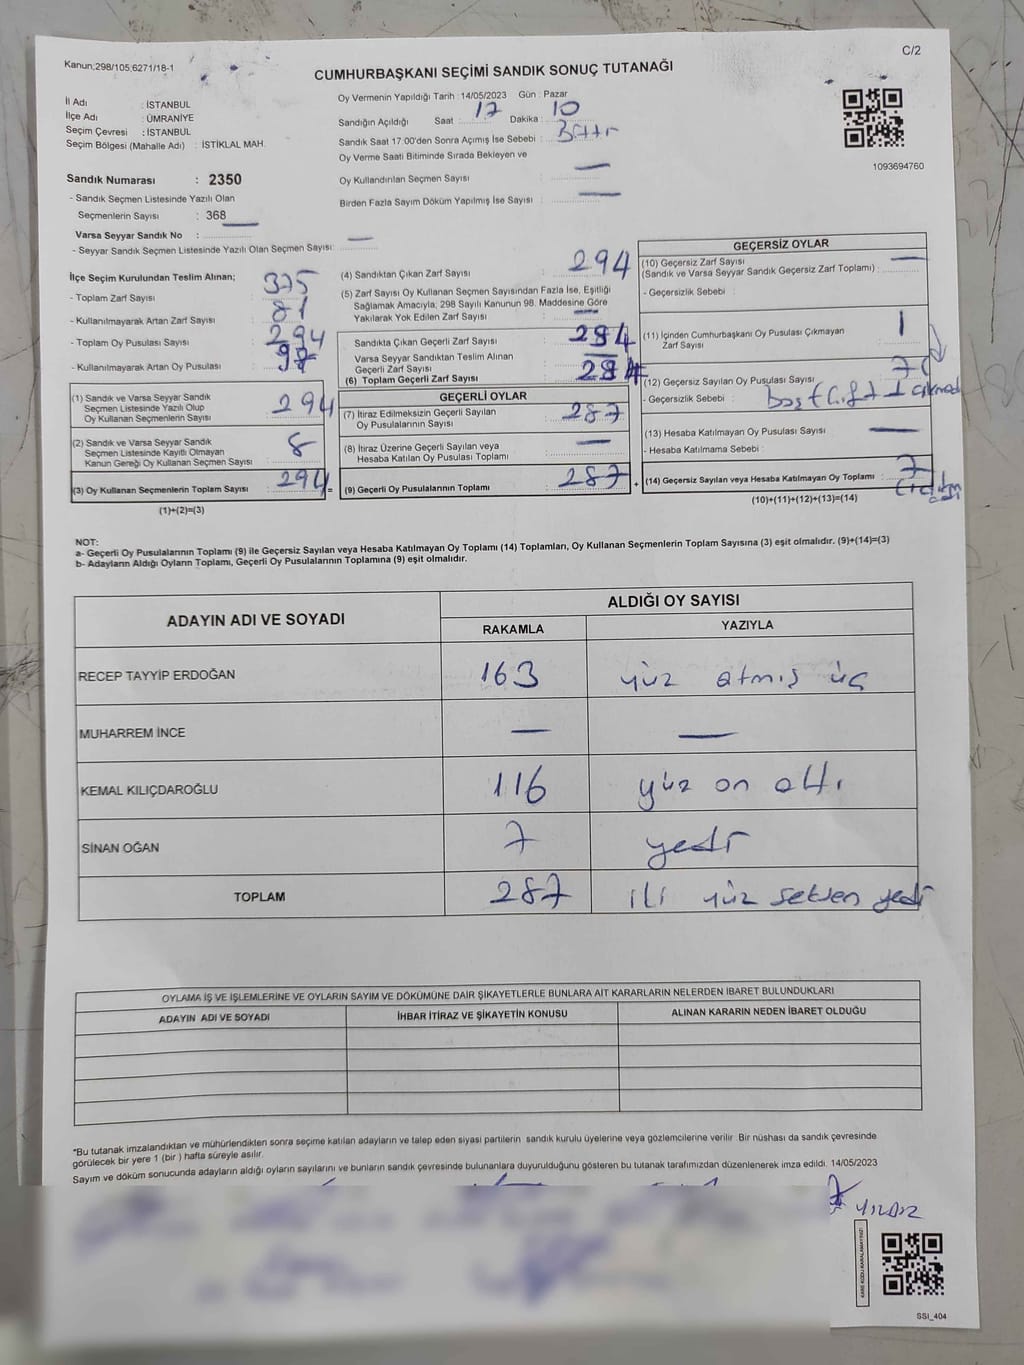 Kanun;298/105;6271/18-1
C/2
CUMHURBAŞKANI SEÇİMİ SANDIK SONUÇ TUTANAĞI
İl Adı : İSTANBUL
İlçe Adı : ÜMRANİYE
Seçim Çevresi : İSTANBUL
Seçim Bölgesi (Mahalle Adı) : İSTİKLAL MAH.
Oy Vermenin Yapıldığı Tarih : 14/05/2023 Gün : Pazar
Sandığın Açıldığı Saat : 17 Dakika : 10
Sandık Saat 17.00'den Sonra Açımış İse Sebebi :
Oy Verme Saati Bitiminde Sırada Bekleyen ve
Oy Kullandırılan Seçmen Sayısı : —
Birden Fazla Sayım Döküm Yapılmış İse Sayısı : —
1093694760
Sandık Numarası : 2350
- Sandık Seçmen Listesinde Yazılı Olan
Seçmenlerin Sayısı : 368
Varsa Seyyar Sandık No :
- Seyyar Sandık Seçmen Listesinde Yazılı Olan Seçmen Sayısı: —
İlçe Seçim Kurulundan Teslim Alınan;
- Toplam Zarf Sayısı : 375
- Kullanılmayarak Artan Zarf Sayısı : 81
- Toplam Oy Pusulası Sayısı : 294
- Kullanılmayarak Artan Oy Pusulası :
(1) Sandık ve Varsa Seyyar Sandık
Seçmen Listesinde Yazılı Olup
Oy Kullanan Seçmenlerin Sayısı : 294
(2) Sandık ve Varsa Seyyar Sandık
Seçmen Listesinde Kayıtlı Olmayan
Kanun Gereği Oy Kullanan Seçmen Sayısı : 8
(3) Oy Kullanan Seçmenlerin Toplam Sayısı : 294 =
(1)+(2)=(3)
(4) Sandıktan Çıkan Zarf Sayısı : 294
(5) Zarf Sayısı Oy Kullanan Seçmen Sayısından Fazla İse, Eşitliği
Sağlamak Amacıyla, 298 Sayılı Kanunun 98. Maddesine Göre
Yakılarak Yok Edilen Zarf Sayısı : —
Sandıkta Çıkan Geçerli Zarf Sayısı : 294
Varsa Seyyar Sandıktan Teslim Alınan
Geçerli Zarf Sayısı : —
(6) Toplam Geçerli Zarf Sayısı : 294
GEÇERLİ OYLAR
(7) İtiraz Edilmeksizin Geçerli Sayılan
Oy Pusulalarının Sayısı : 287
(8) İtiraz Üzerine Geçerli Sayılan veya
Hesaba Katılan Oy Pusulası Toplamı : —
(9) Geçerli Oy Pusulalarının Toplamı : 287 +
GEÇERSİZ OYLAR
(10) Geçersiz Zarf Sayısı
(Sandık ve Varsa Seyyar Sandık Geçersiz Zarf Toplamı) : —
- Geçersizlik Sebebi :
(11) İçinden Cumhurbaşkanı Oy Pusulası Çıkmayan
Zarf Sayısı : 1
(12) Geçersiz Sayılan Oy Pusulası Sayısı : 7
- Geçersizlik Sebebi :
(13) Hesaba Katılmayan Oy Pusulası Sayısı : —
- Hesaba Katılmama Sebebi :
(14) Geçersiz Sayılan veya Hesaba Katılmayan Oy Toplamı : 7
(10)+(11)+(12)+(13)=(14)
NOT:
a- Geçerli Oy Pusulalarının Toplamı (9) ile Geçersiz Sayılan veya Hesaba Katılmayan Oy Toplamı (14) Toplamları, Oy Kullanan Seçmenlerin Toplam Sayısına (3) eşit olmalıdır. (9)+(14)=(3)
b- Adayların Aldığı Oyların Toplamı, Geçerli Oy Pusulalarının Toplamına (9) eşit olmalıdır.
ADAYIN ADI VE SOYADI
ALDIĞI OY SAYISI
RAKAMLA YAZIYLA
RECEP TAYYİP ERDOĞAN 163 yüz atmış üç
MUHARREM İNCE — —
KEMAL KILIÇDAROĞLU 116 yüz on altı
SİNAN OĞAN 7 yedi
TOPLAM 287 iki yüz seksen yedi
OYLAMA İŞ VE İŞLEMLERİNE VE OYLARIN SAYIM VE DÖKÜMÜNE DAİR ŞİKAYETLERLE BUNLARA AİT KARARLARIN NELERDEN İBARET BULUNDUKLARI
ADAYIN ADI VE SOYADI İHBAR İTİRAZ VE ŞİKAYETİN KONUSU ALINAN KARARIN NEDEN İBARET OLDUĞU
*Bu tutanak imzalandıktan ve mühürlendikten sonra seçime katılan adayların ve talep eden siyasi partilerin sandık kurulu üyelerine veya gözlemcilerine verilir. Bir nüshası da sandık çevresinde
görülecek bir yere 1 (bir) hafta süreyle asılır.
Sayım ve döküm sonucunda adayların aldığı oyların sayılarını ve bunların sandık çevresinde bulunanlara duyurulduğunu gösteren bu tutanak tarafımızdan düzenlenerek imza edildi. 14/05/2023
YILDIZ
KARE KODU KARALAMAYINIZ!
SSI_404